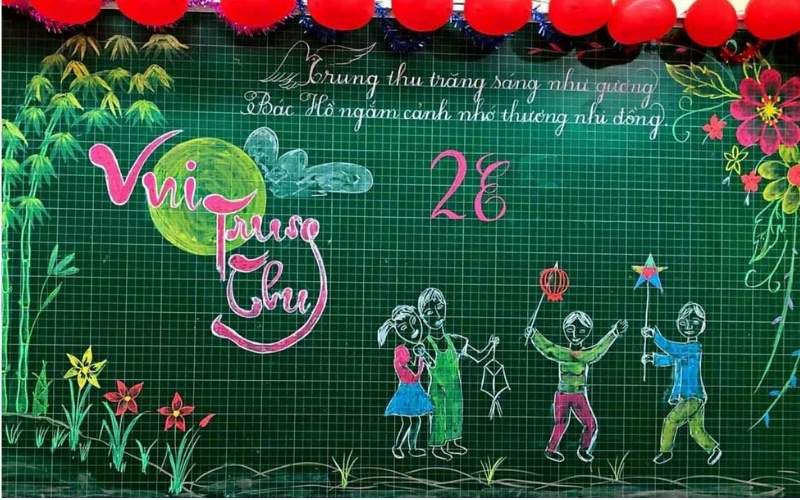 Trung thu trăng sáng như gương
Bác Hồ ngắm cảnh nhớ thương nhi đồng.
Vui
Trung
Thu
2E